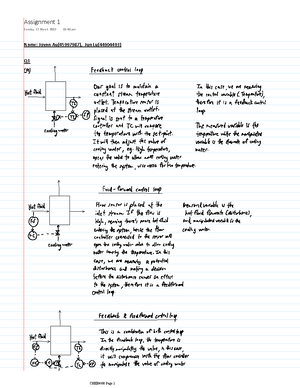 Assignment 1
Q1
(a)
Feedback control loop
Hot Fluid
cooling water
Our goal is to maintain a
constant stream temperature
outlet. Temperature sensor is
placed at the stream outlet.
Signal is sent to a temperature
controller and TC will compare
its temperature with the set point.
It will then adjust the valve of
cooling water, eg. high temperature,
opens the valve to allow more cooling water
entering the system,
In this case, we are measuring
the control variable (Temperature),
therefore it is a feedback control
loop
The measured variable is the
temperature while the manipulated
variable is the flowrate of cooling
water.
Feed-forward control loop
Hot Fluid
cooling water
Flow sensor is placed at the
inlet stream. If the flow is
high, meaning there's more hot fluid
entering the system, hence the flow
controller connected to the sensor will
open the cooling water valve to allow cooling
water lowering the temperature. In this
case, we are measuring a potential
disturbance and making a decision
before the disturbance causes an effect
to the system, therefore it is a feedforward
control loop.
Measured variable is the
hot fluid flowrate (disturbance),
and manipulated variable is the
cooling water.
Feedback & Feedforward control loop
Hot fluid
cooling water
This is a combination of both control loop
In the feedback loop, the temperature is
directly manipulating the valve, in this case,
it will compromise with the flow controller
to manipulate the valve of cooling water
Page 1